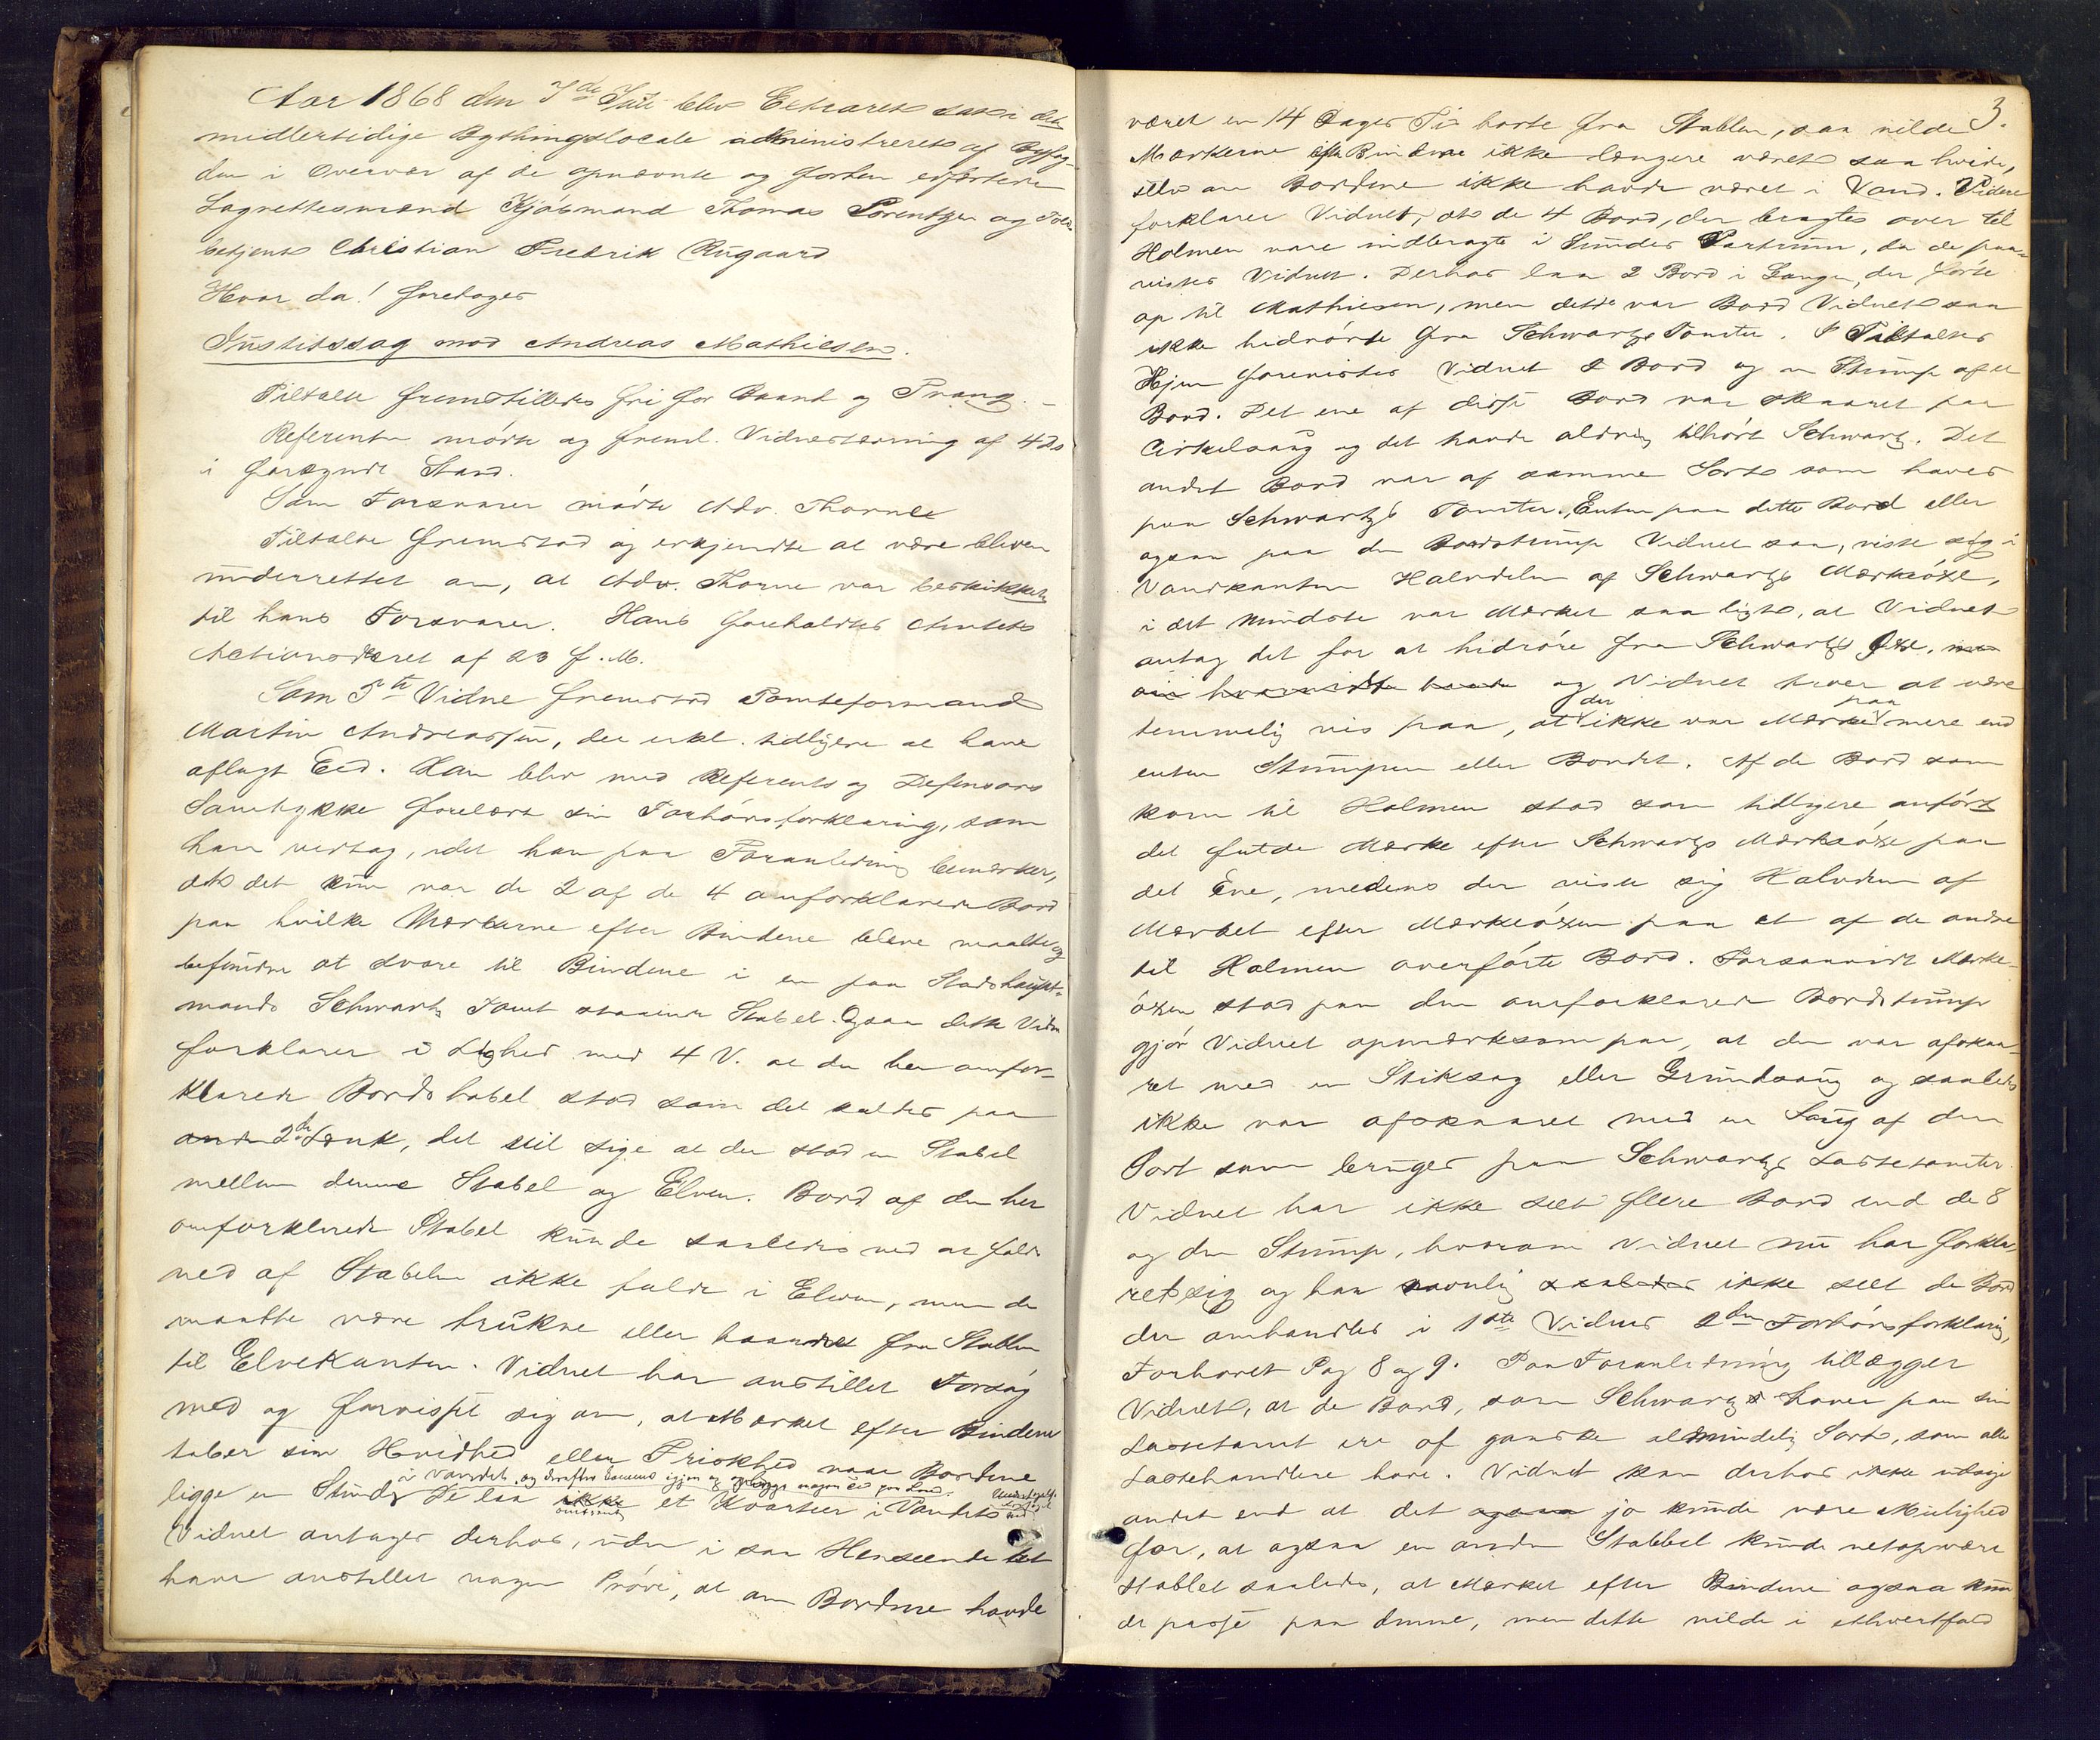 Aar 1868 den 7de Juli blev Extraret sat i det
midlertidige Bythingslocale administreret af Byfog-
den i Overvær af de opnævnte og forhen edfæstede
Lagrettesmænd Kjøbmand Thomas Lorentzen og Told-
betjent Christian Fredrik Rugaard
Hvor da! foretoges
Justitssag mod Andreas Mathiesen.
Tiltalte fremstilledes fri for Baand og Tvang. –
Referenten mødte og freml. Vidnestævning af 4 ds
i forkyndt Stand.
Som Forsvarer mødte Adv. Thorne
Tiltalte fremstod og erkjendte at være bleven
underrettet om, at Adv. Thorne var beskikket
til hans Forsvarer. Hans foreholdtes Amtets
Actionsordre af 23 f. M.
Som 5te Vidne fremstod Tomteformand
Martin Andreassen, der erkl. tidligere at have
aflagt Eed. Han blev med Referents og Defensors
Samtykke forelæst sin Forhørsforklaring, som
han vedtog, idet han paa Foranledning bemærker,
at det kun var de 2 af de 4 omforklarede Bord
paa hvilke Mærkerne efter Bindene bleve maalte og
befundne at svare til Bindene i en paa Stadshaupt-
mands Schwartz Tomt staaende Stabel. Ogsaa dette Vidne
forklarer i Lighed med 4 V. at den her omfor-
klarede Bordstabel stod som det kaldes paa
anden 2den Lænk, det vil sige at der stod en Stabel
mellem denne Stabel og Elven. Bord af den her
omforklarede Stabel kunde saaledes ved at falde
ned af Stabelen ikke falde i Elven, men de
maatte være trukne eller baarne fra Stablen
til Elvekanten. Vidnet har anstillet Forsøg
med og forvisset sig om, at Mærket efter Bindene
taber sin Hvidhed eller Friskhed naar Bordene
i Vandet, og derefter komme igjen og oplægges nogen Tid paa Land.
ligge en Stund De laa ikke et Kvarteer i Vandet
omtrent
Vidnet antager derhos, uden i saa Henseende at
have anstillet nogen Prøve, at om Bordene havde
3.
været en 14 Dages Tid borte fra Stablen, saa vilde
Mærkerne efter Bindene ikke længere været saa hvide,
selv om Bordene ikke havde været i Vand. Videre
forklarer Vidnet, at de 4 Bord, der bragtes over til
Holmen vare indbragte i Sundes Partrum, da de paa-
vistes Vidnet. Derhos laa 2 Bord i Gangen, der førte
op til Mathiesen, men dette var Bord Vidnet saa
ikke hidrørte fra Schwartz's Tomter. I Tiltaltes
Hjem forevistes Vidnet 2 Bord og en Stump af et
Bord. Det ene af disse Bord var skaaret paa
Cirkelsaug og det havde aldrig tilhørt Schwartz. Det
andet Bord var af samme Sort som haves
paa Schwartz's Tomter. Enten paa dette Bord eller
ogsaa paa den Bordstump Vidnet saa, viste sig i
Vandkanten Halvdelen af Schwartz's Mærkeøxe,
i det mindste var Mærket saa ligt, at Vidnet
antog det for at hidrøre fra Schwartz's Øxe, men
og Vidnet troer at være
der paa
temmelig vis paa, at ikke var Mærke mere end
enten Stumpen eller Bordet. Af de Bord som
kom til Holmen stod som tidligere anført
det fulde Mærke efter Schwartz's Mærkeøxe paa
det Ene, medens der viste sig Halvdelen af
Mærket efter Mærkeøxen paa et af de andre
til Holmen overførte Bord. Forsaavidt Mærke-
øxen stod paa den omforklarede Bordstump
gjør Vidnet opmærksom paa, at den var afskaa-
ret med en Stiksag eller Grundsaug og saaledes
ikke var afskaaret med en Saug af den
Sort som bruges paa Schwartz's Lastetomter.
Vidnet har ikke seet flere Bord end de 8
og den Stump, hvorom Vidnet nu har forkla-
ret sig og han navnlig saaledes ikke seet de Bord
der omhandles i 1ste Vidnes 2den Forhørsforklaring,
Forhøret Pag 8 og 9. Paa Foranledning tillægger
Vidnet, at de Bord, som Schwartz haver paa sin
Lastetomt ere af ganske almindelig Sort, som alle
Lastehandlere have. Vidnet kan derhos ikke udsige
andet end at det ogsaa jo kunde være Mulighed
for, at ogsaa en anden Stabbel kunde netop være
stablet saaledes, at Mærket efter Bindene ogsaa kun-
de passe paa denne, men dette vilde i ethvertfald